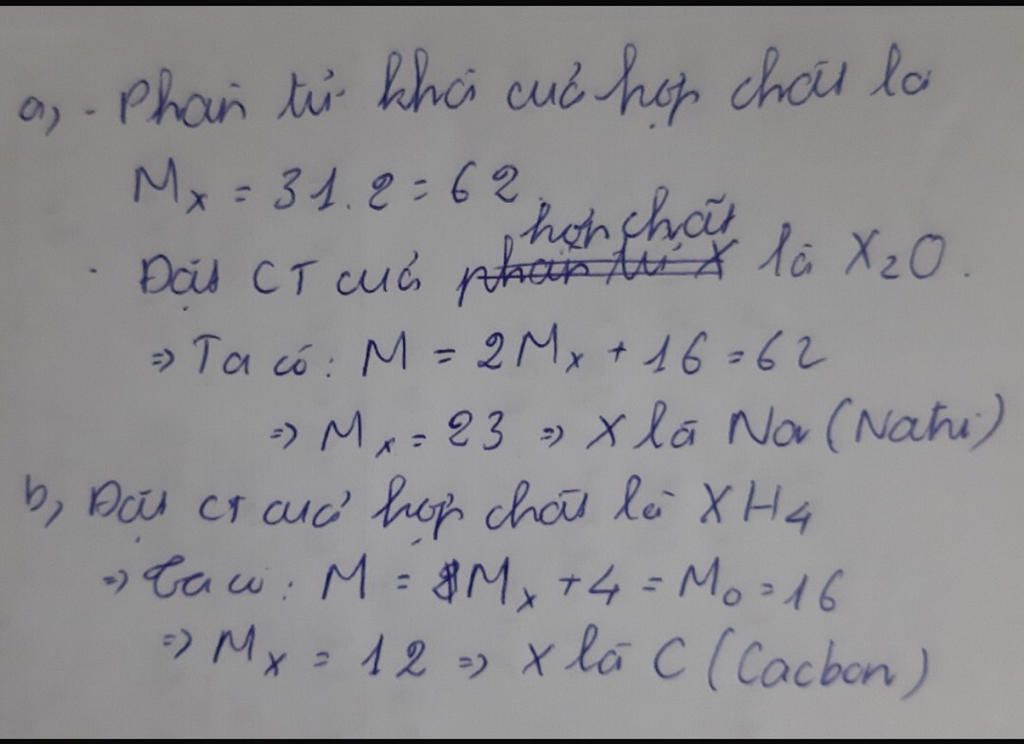 a, - Phân tử khối của hợp chất là
Mx = 31.2 = 62
hợp chất
- Đặt CT của phân tử X là X₂O.
=> Ta có: M = 2Mx + 16 = 62
=> Mx = 23 => X là Na (Natri)
b, Đặt CT của hợp chất là XH₄
=> Ta có: M = Mx + 4 = Mo = 16
=> Mx = 12 => X là C (Cacbon)